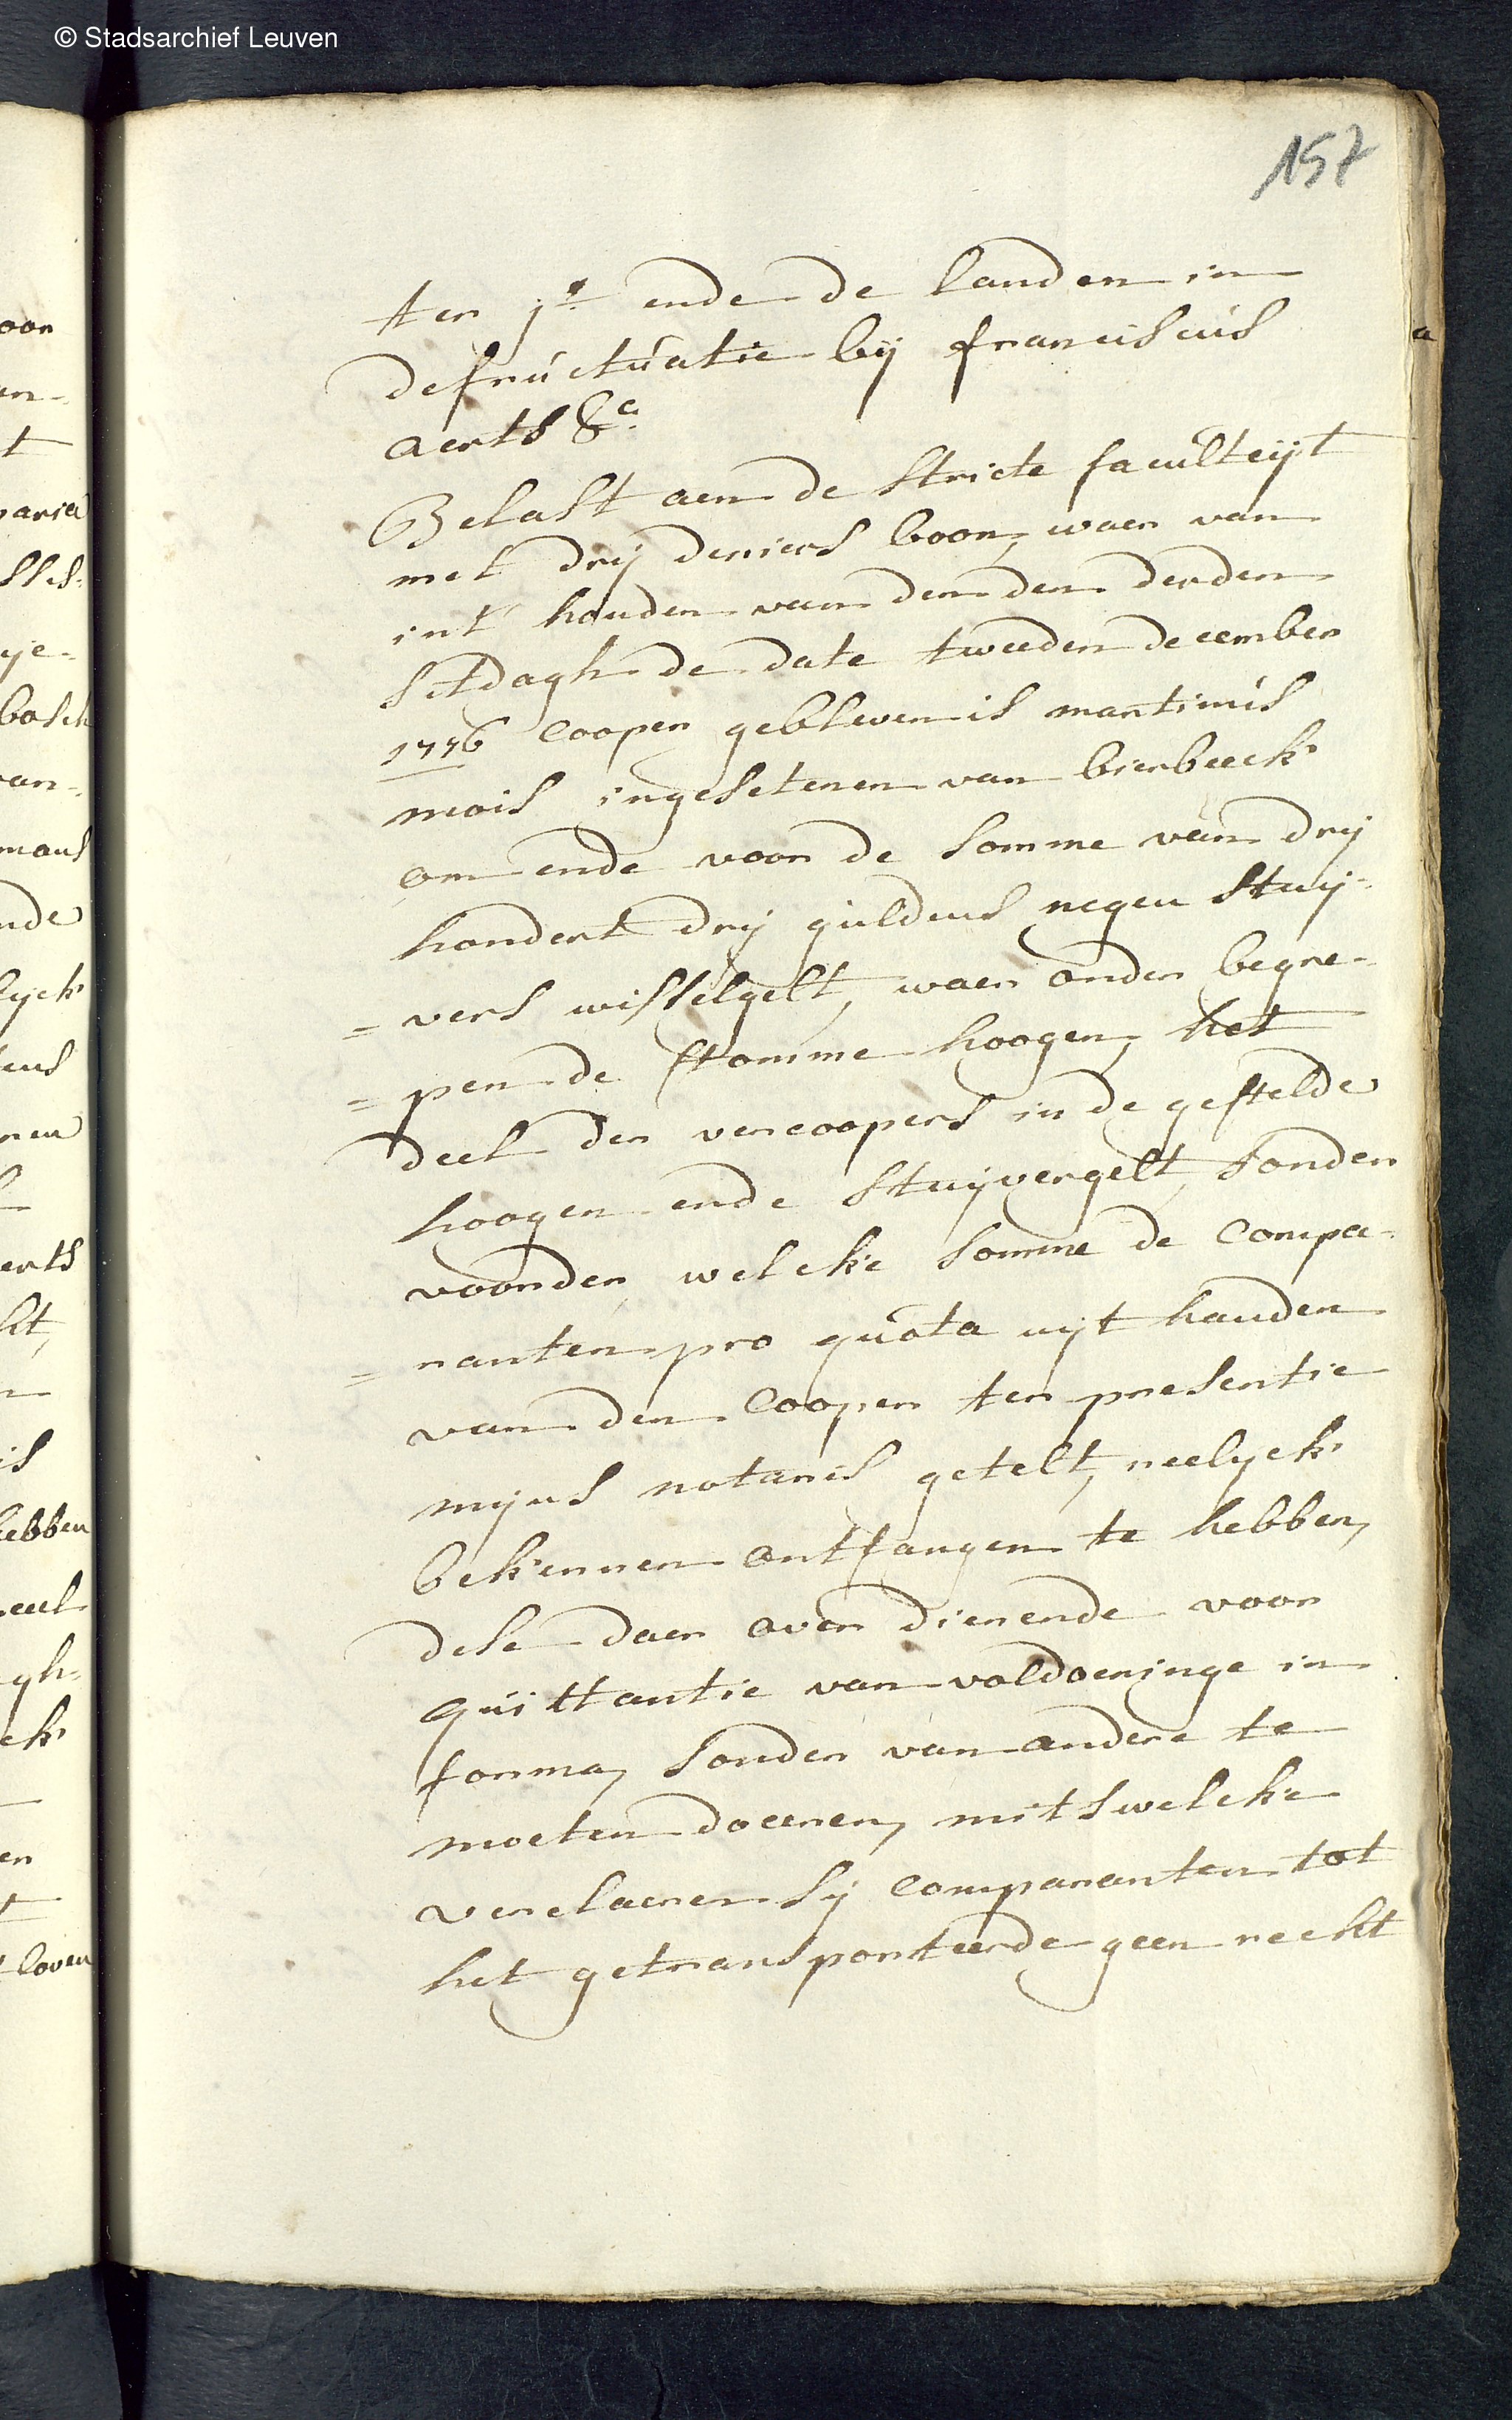 © Stadsarchief Leuven
157
ter je ende de landen in
defructuatie bij franciscus
aerts &c.
Belast aen de stricte faculteijt
met drij deniers boon, waer van
int houden van den den derden
sitdagh de date tweeden december
1776 Cooper gebleven is martinus
mois ingesetenen van bierbeeck
om ende voor de somme van drij
hondert drij guldens negen stuij-
= vers wisselgelt, waer onder begre-
= pen de stomme hoogen, het
deel der vercoopers in de gestelde
hoogen ende stuijvergelt, sonder
voorder, welcke somme de compa-
= ranten pro quota uijt handen
van den Cooper ter presentie
mijns notaris getelt, reelyck
bekennen ontfangen te hebben,
dese daer over dienende voor
quittantie van voldoeninge in
forma, sonder van andere te
moeten doceren, mits welcke
verclaeren sij comparanten tot
het getransporteerde geen recht